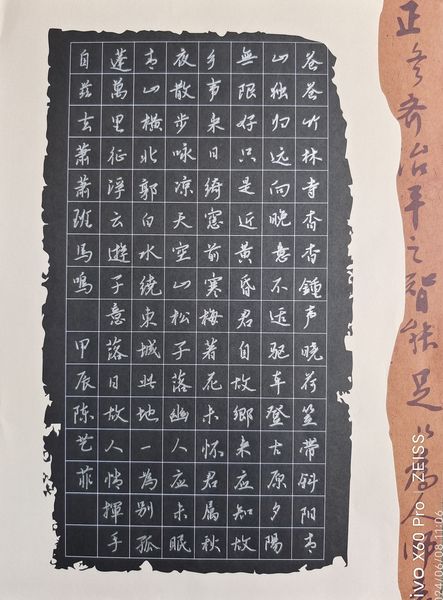 苍苍竹林寺杳杳鍾声晚荷笠带斜阳青
山独归远向晚意不适驱车登古原夕陽
無限好只是近黄昏君自故鄉来应知故
乡事来日绮窓前寒梅著花未怀君属秋
夜散步咏凉天空山松子落幽人应未眠
青山横北郭白水绕東城此地一為别孤
蓬萬里征浮云遊子意落日故人情揮手
自兹去蕭蕭班馬鳴
甲辰陈艺菲
齐治平之智能足以为
vivo X60 Pro | ZEISS
2024/06/08 11:06